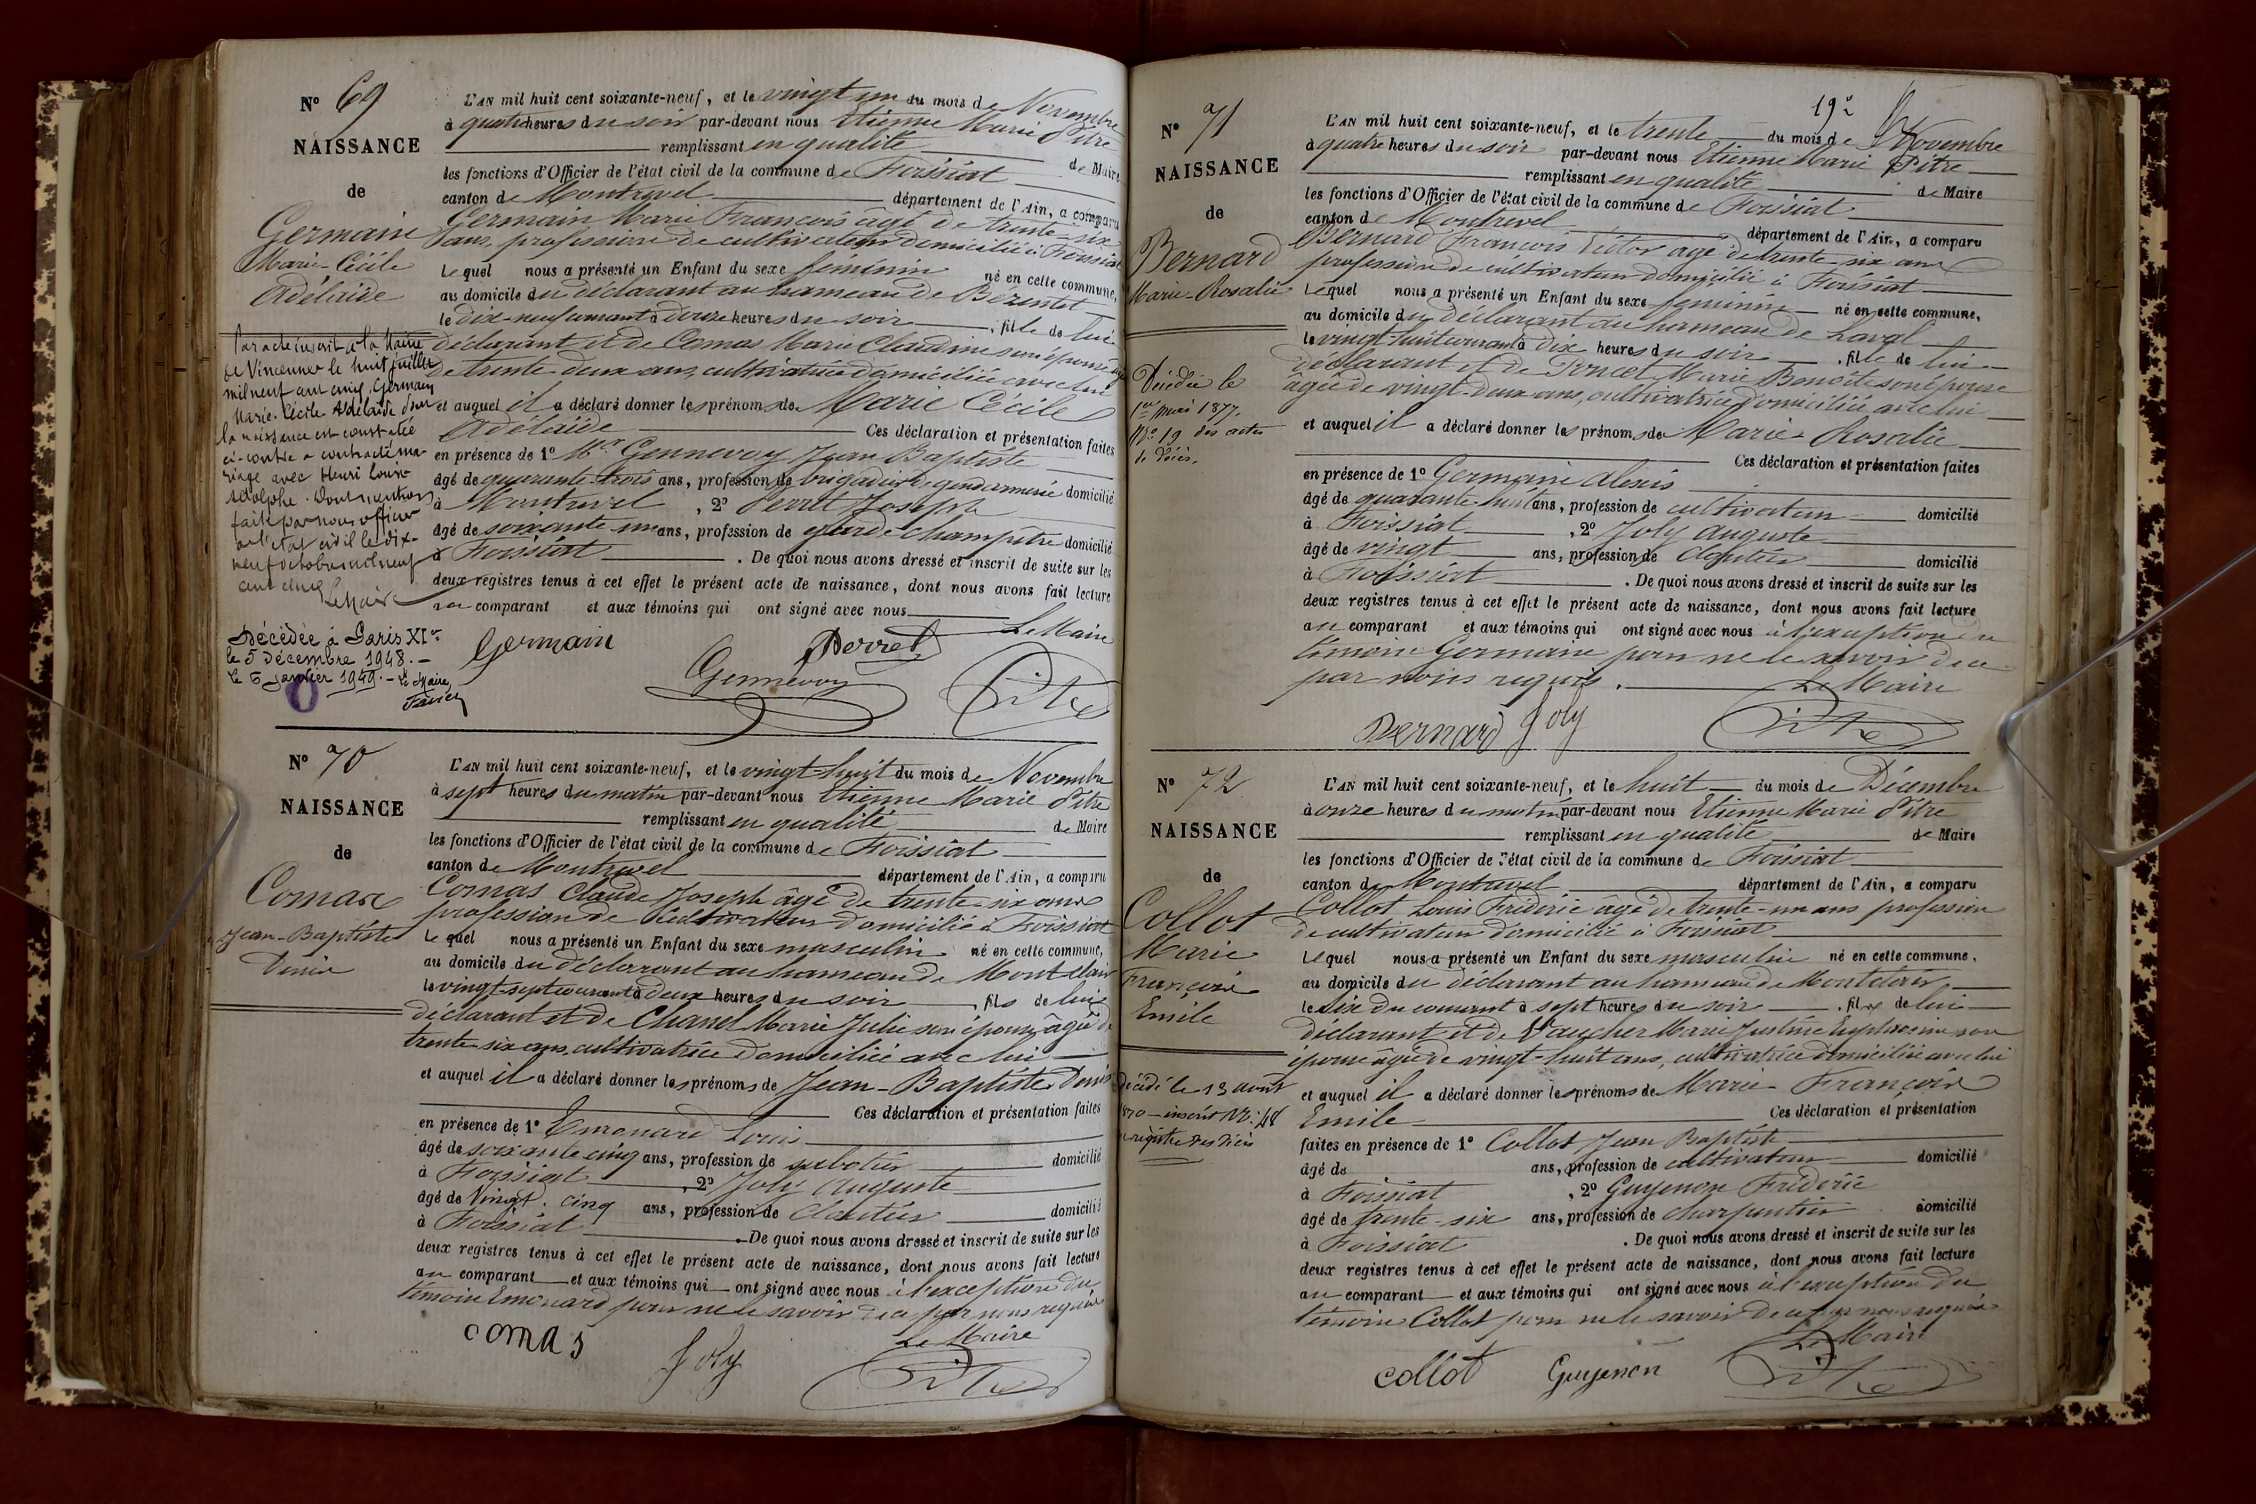 Nº 69
NAISSANCE
de
Germain
Marie Cécile
Adélaïde
Par acte inscrit à la Mairie
de Vincennes le huit juillet
mil neuf cent cinq Germain
Marie Cécile Adélaïde dont
la naissance est constatée
ci-contre a contracté ma-
riage avec Henri Louis
Adolphe. Dont mention
faite par nous officier
de l'état civil le dix-
neuf octobre mil neuf
cent cinq
Le Maire
Décédée à Paris XIe
le 5 Décembre 1948.
le 6 janvier 1949. Le Maire,
L'AN mil huit cent soixante-neuf, et le vingt un du mois de Novembre
à quatre heures du soir par-devant nous Etienne Marie Pitre
remplissant en qualité de Maire
les fonctions d'Officier de l'état civil de la commune de Foissiat
canton de Montrevel département de l'Ain, a comparu
Germain Marie François âgé de trente six
ans, profession de cultivateur domicilié à Foissiat
Lequel nous a présenté un Enfant du sexe féminin né en cette commune,
au domicile du déclarant au hameau de
le dix-neuf courant à douze heures du soir, fille de lui
déclarant et de Comas Marie Claudine son épouse âgée
de trente deux ans, cultivatrice domiciliée avec lui
et auquel il a déclaré donner les prénoms de Marie Cécile
Adélaïde Ces déclaration et présentation faites
en présence de 1º Mr Gennevoy Jean Baptiste
âgé de quarante-trois ans, profession de brigadier de gendarmerie domicilié
à Montrevel, 2º Perret Joseph
âgé de soixante un ans, profession de garde champêtre domicilié
à Foissiat. De quoi nous avons dressé et inscrit de suite sur les
deux registres tenus à cet effet le présent acte de naissance, dont nous avons fait lecture
au comparant et aux témoins qui ont signé avec nous
Le Maire
Germain Perret
Gennevoy Pitre
Nº 70
NAISSANCE
de
Comas
Jean-Baptiste
Denis
L'AN mil huit cent soixante-neuf, et le vingt-huit du mois de Novembre
à sept heures du matin par-devant nous Etienne Marie Pitre
remplissant en qualité de Maire
les fonctions d'Officier de l'état civil de la commune de Foissiat
canton de Montrevel département de l'Ain, a comparu
Comas Claude Joseph âgé de trente-six ans
profession de cultivateur domicilié à Foissiat
Lequel nous a présenté un Enfant du sexe masculin né en cette commune,
au domicile du déclarant au hameau de Mont clair
le vingt-sept courant à deux heures du soir, fils de lui
déclarant et de Chanel Marie Julie son épouse âgée de
trente-six ans, cultivatrice domiciliée avec lui
et auquel il a déclaré donner les prénoms de Jean-Baptiste Denis
Ces déclaration et présentation faites
en présence de 1º Emonard Louis
âgé de soixante cinq ans, profession de sabotier domicilié
à Foissiat, 2º Joly Auguste
âgé de Vingt. Cinq ans, profession de domicilié
à Foissiat. De quoi nous avons dressé et inscrit de suite sur les
deux registres tenus à cet effet le présent acte de naissance, dont nous avons fait lecture
au comparant et aux témoins qui ont signé avec nous à l'exception du
témoin Emonard pour ne le savoir de ce par nous requis
Le Maire
comas Joly Pitre
192
Nº 71
NAISSANCE
de
Bernard
Marie-Rosalie
Décédée le
1er mai 1877.
Nº 19 des actes
de décès.
L'AN mil huit cent soixante-neuf, et le trente du mois de Novembre
à quatre heures du soir par-devant nous Etienne Marie Pitre
remplissant en qualité de Maire
les fonctions d'Officier de l'état civil de la commune de Foissiat
canton de Montrevel département de l'Ain, a comparu
Bernard François Victor âgé de trente-six ans
profession de cultivateur domicilié à Foissiat
Lequel nous a présenté un Enfant du sexe féminin né en cette commune,
au domicile du déclarant au hameau de Laval
le vingt-huit courant à dix heures du soir, fille de lui
déclarant et de Poncet Marie Benoîte son épouse
âgée de vingt-deux ans, cultivatrice domiciliée avec lui
et auquel il a déclaré donner les prénoms de Marie-Rosalie
Ces déclaration et présentation faites
en présence de 1º Germain Alexis
âgé de quarante-huit ans, profession de cultivateur domicilié
à Foissiat, 2º Joly Auguste
âgé de vingt ans, profession de domicilié
à Foissiat. De quoi nous avons dressé et inscrit de suite sur les
deux registres tenus à cet effet le présent acte de naissance, dont nous avons fait lecture
au comparant et aux témoins qui ont signé avec nous à l'exception du
témoin Germain pour ne le savoir de ce
par nous requis.
Le Maire
Bernard Joly Pitre
Nº 72
NAISSANCE
de
Collot
Marie
François
Emile
décédé le 13 août
1870 inscrit Nº 48
registre des décès
L'AN mil huit cent soixante-neuf, et le huit du mois de Décembre
à onze heures du matin par-devant nous Etienne Marie Pitre
remplissant en qualité de Maire
les fonctions d'Officier de l'état civil de la commune de Foissiat
canton de Montrevel département de l'Ain, a comparu
Collot Louis Frédéric âgé de trente-un ans profession
de cultivateur domicilié à Foissiat
Lequel nous a présenté un Enfant du sexe masculin né en cette commune,
au domicile du déclarant au hameau de Montclair
le six du courant à sept heures du soir, fils de lui
déclarant et de Vaucher Marie Justine Euphrosine son
épouse âgée de vingt-huit ans, cultivatrice domiciliée avec lui
et auquel il a déclaré donner les prénoms de Marie François
Emile Ces déclaration et présentation
faites en présence de 1º Collot Jean Baptiste
âgé de ans, profession de cultivateur domicilié
à Foissiat, 2º Guyenon Frédéric
âgé de trente-six ans, profession de charpentier domicilié
à Foissiat. De quoi nous avons dressé et inscrit de suite sur les
deux registres tenus à cet effet le présent acte de naissance, dont nous avons fait lecture
au comparant et aux témoins qui ont signé avec nous à l'exception du
témoin Collot pour ne le savoir de ce par nous requis
Le Maire
collot Guyenon Pitre